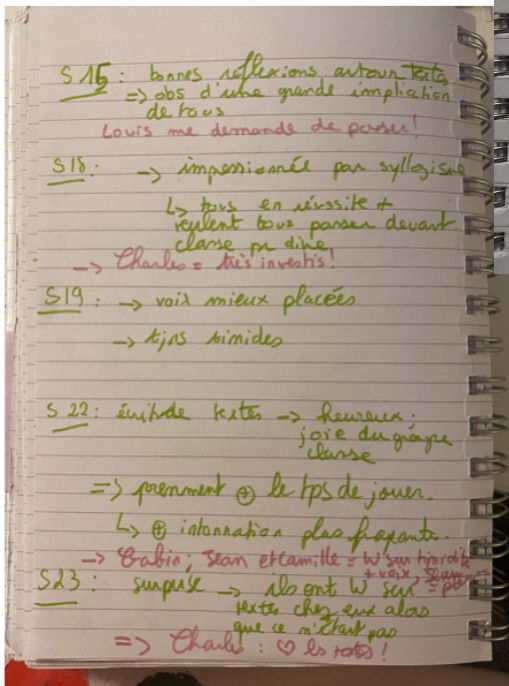 S 15 : bonnes réflexions autour texte
=> obs d'une grande impliation
de tous
Louis me demande de passer !
S18 : -> impressionnée par syllogisme
↳ tous en réussite +
veulent tous passer devant
classe pr dire
-> Charles = très investis !
S19 : -> voix mieux placées
-> tjrs timides
S 22 : textes -> heureux :
joie du groupe
classe
=> prennent ⊕ le tps de jouer.
↳ ⊕ intonnation plus frapante.
-> Gabin, Sean et Camille = W sur timidité
+ voix, Sean
S23 : surprise -> ils ont W sur
textes chez eux alors
que ce n'était pas
=> Charles : ♡ les textes !